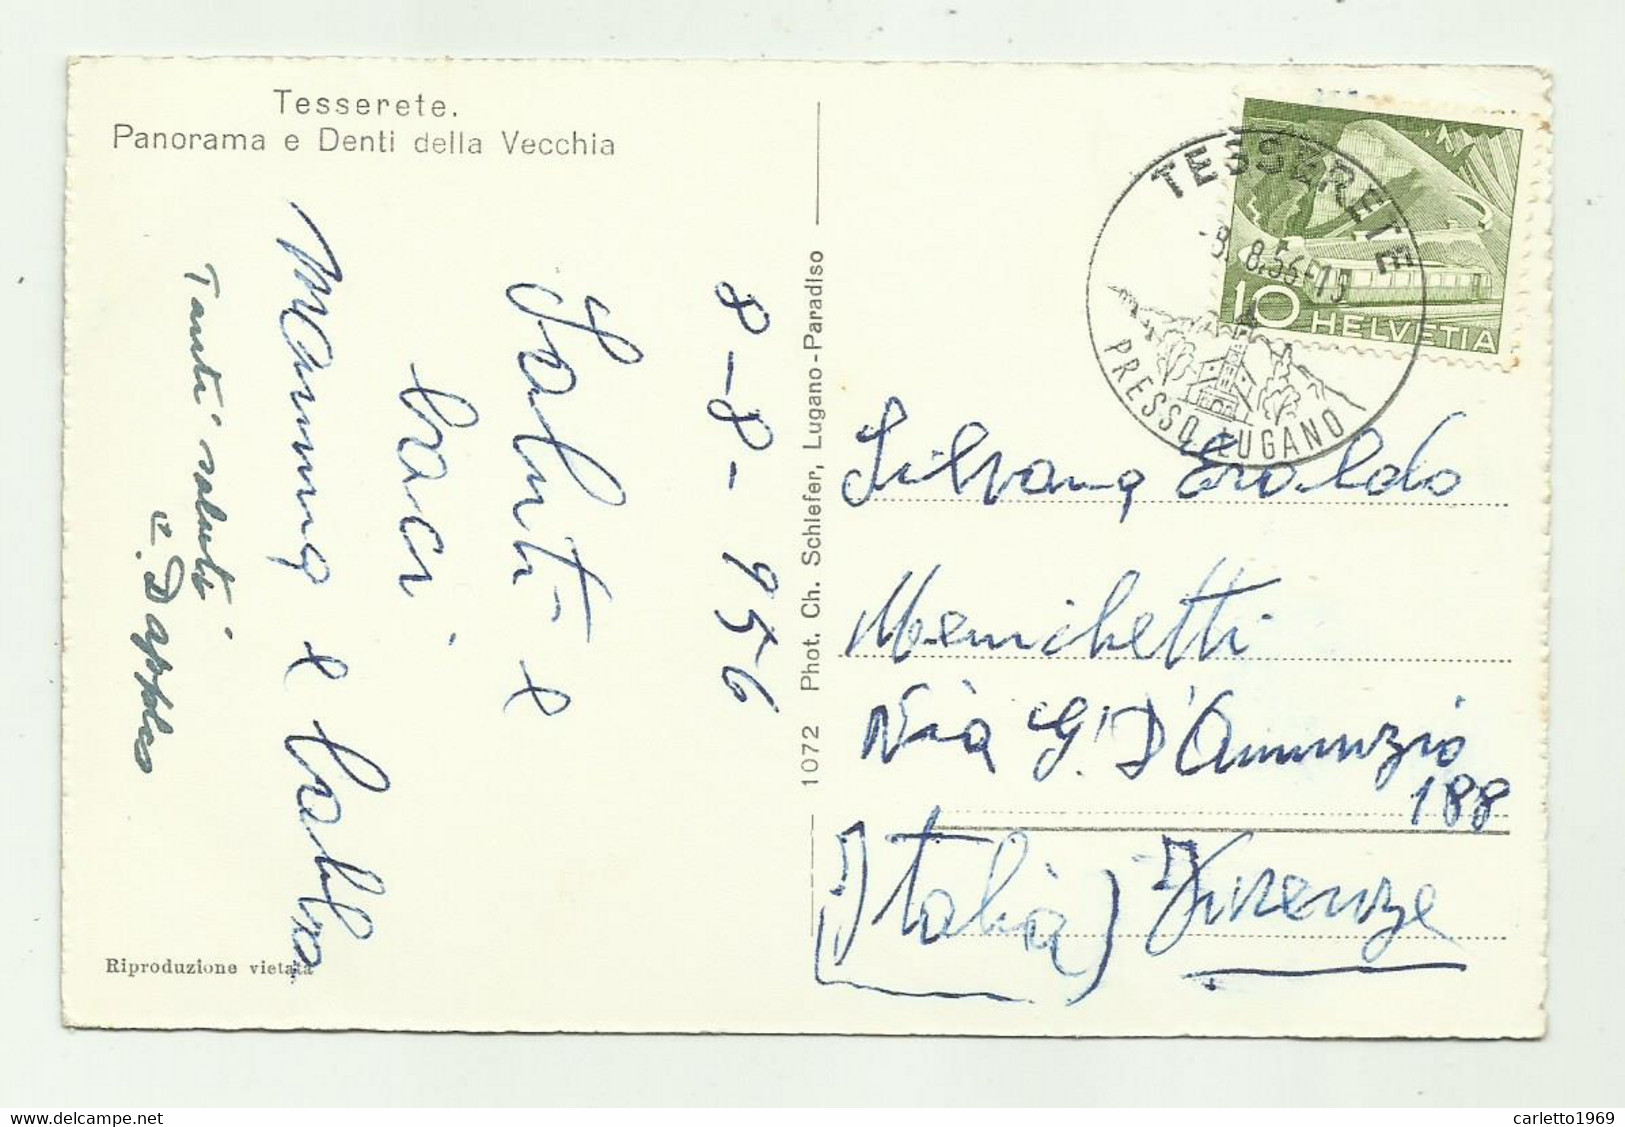 Tesserete.
Panorama e Denti della Vecchia
8-8-956
Saluti e
baci
Mamma e babbo
Tanti saluti
E. Dapples
Riproduzione vietata
1072 Phot. Ch. Schiefer, Lugano-Paradiso
TESSERETE
-8.8.56-19
PRESSO LUGANO
10 HELVETIA
Silvana Eraldo
Menichetti
Via G. D'Annunzio
188
(Italia) Firenze
www.delcampe.net
carletto1969